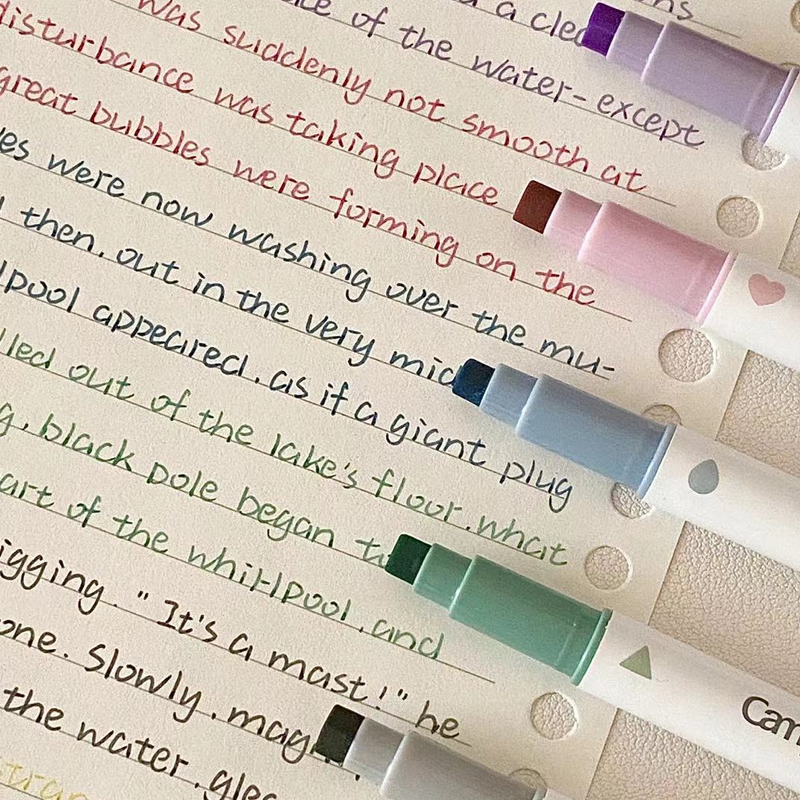 a clea
of the water-except
was suddenly not smooth at
disturbance was taking place
great bubbles were forming on the
were now washing over the mu-
then. out in the very mid
appeared. as if a giant plug
out of the lake's floor. what
black pole began
of the whirlpool. and
"It's a mast!" he
Slowly. mag
the water. glea
Cam